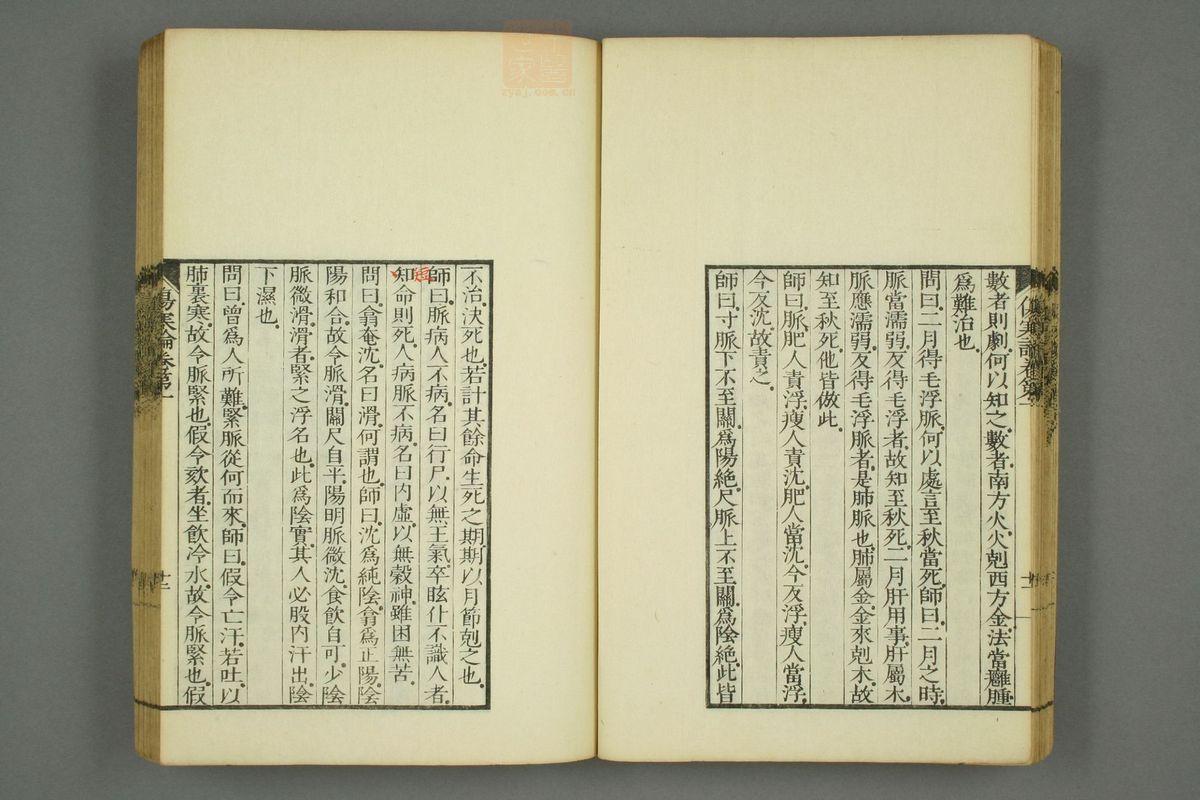 數者則劇何以知之數者南方火火剋西方金法當癰腫
爲難治也
問曰二月得毛浮脈何以處言至秋當死師曰二月之時
脈當濡弱反得毛浮者故知至秋死二月肝用事肝屬木
脈應濡弱反得毛浮脈者是肺脈也肺屬金金來剋木故
知至秋死他皆倣此
師曰脈肥人責浮瘦人責沈肥人當沈今反浮瘦人當浮
今反沈故責之
師曰寸脈下不至關爲陽絕尺脈上不至關爲陰絕此皆
不治決死也若計其餘命生死之期期以月節剋之也
師曰脈病人不病名曰行尸以無王氣卒眩仆不識人者
短
知命則死人病脈不病名曰內虛以無穀神雖困無苦
問曰翕奄沈名曰滑何謂也師曰沈爲純陰翕爲正陽陰
陽和合故令脈滑關尺自平陽明脈微沈食飲自可少陰
脈微滑滑者緊之浮名也此爲陰實其人必股內汗出陰
下濕也
問曰曾爲人所難緊脈從何而來師曰假令亡汗若吐以
肺裏寒故令脈緊也假令欬者坐飲冷水故令脈緊也假
傷寒論卷第一
十二
zyaj.ooo.cn